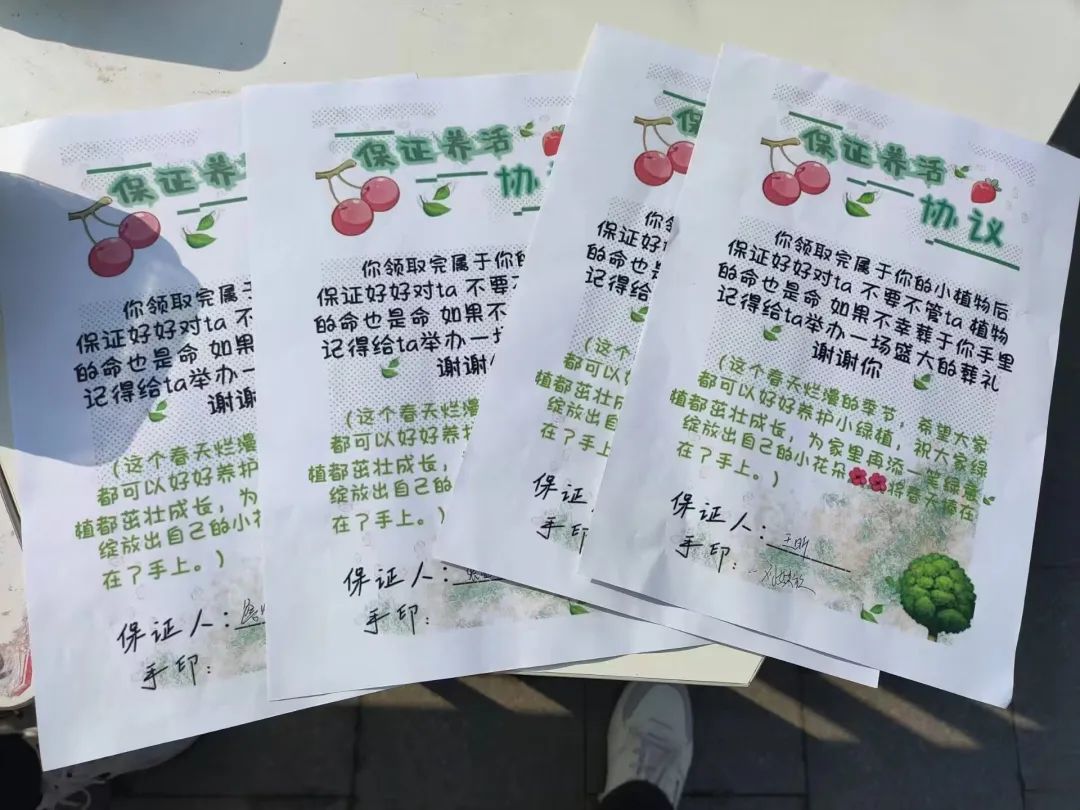 保证养
你领取完属于
保证好好对ta 不
的命也是命 如果
记得给ta举办一
谢谢
(这个春天烂漫
都可以好好养护
植都茁壮成长，为
绽放出自己的小花
在了手上。)
保证人：
手印：
保证养活
协
你领取完属于你的
保证好好对ta 不要
的命也是命 如果不
记得给ta举办一场
谢谢
(这个春天烂漫
都可以好好养护
植都茁壮成长，
绽放出自己的
在了手上。)
保证人：
手印：
保
你领
保证好好
的命也是
记得给ta
(这个
都可以
植都茁壮
绽放出自
在了手上。)
保证
手印：
保证养活
协议
你领取完属于你的小植物后
保证好好对ta 不要不管ta 植物
的命也是命 如果不幸葬于你手里
记得给ta举办一场盛大的葬礼
谢谢你
(这个春天烂漫的季节，希望大家
都可以好好养护小绿植，祝大家绿
植都茁壮成长，为家里再添一些绿意
绽放出自己的小花朵 将春
在了手上。)
保证人：王昕
手印：